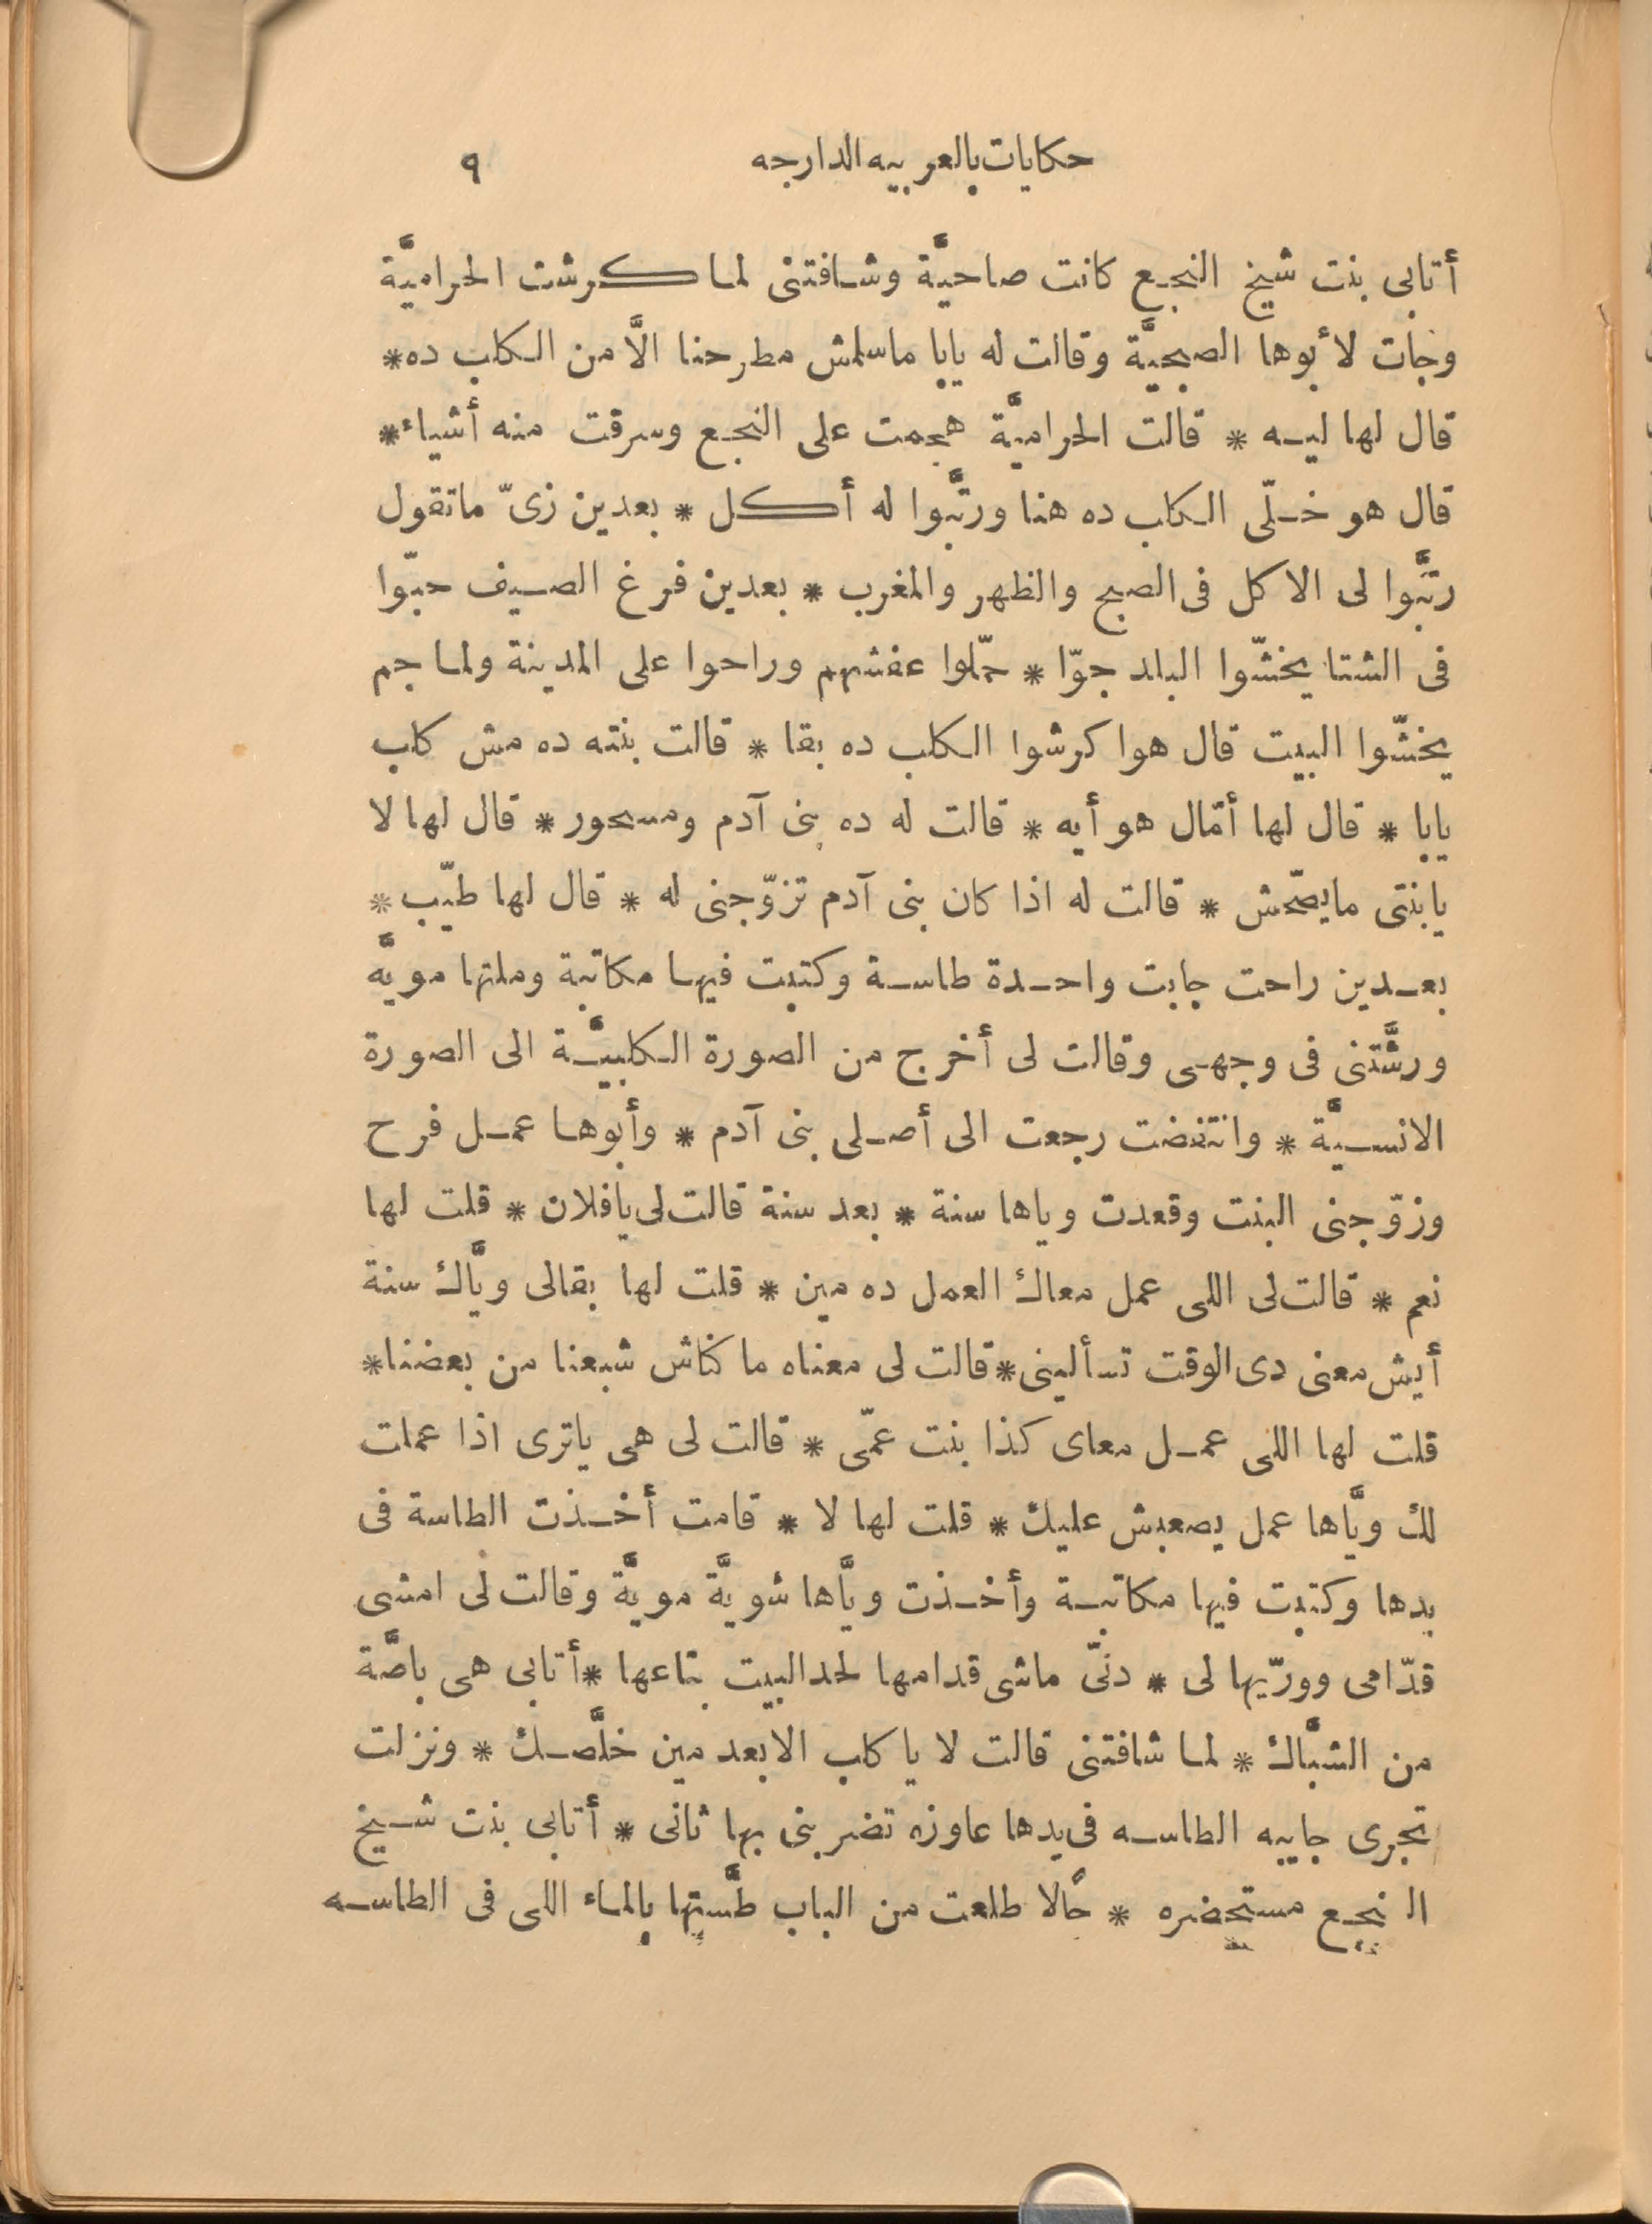 حكايات بالعربيه الدارجه ٩
أتابى بنت شيخ النجع كانت صاحيَّة وشافتنى لما كرشت الحراميَّة
وجات لأبوها الصبحيَّة وقالت له يابا ماسلمش مطرحنا الَّا من الكلب ده*
قال لها ليه * قالت الحراميَّة هجمت على النجع وسرقت منه أشياء*
قال هو خلّى الكلب ده هنا ورتَّبوا له أكل * بعدين زىّ ماتقول
رتَّبوا لى الاكل فى الصبح والظهر والمغرب * بعدين فرغ الصيف حبّوا
فى الشتا يخشّوا البلد جوّا * حمّلوا عفشهم وراحوا على المدينة ولما جم
يخشّوا البيت قال هوا كرشوا الكلب ده بقا * قالت بنته ده مش كلب
يابا * قال لها أمّال هو أيه * قالت له ده بنى آدم ومسحور * قال لها لا
يابنتى مايصحّش * قالت له اذا كان بنى آدم تزوّجنى له * قال لها طيّب *
بعدين راحت جابت واحدة طاسة وكتبت فيها مكاتبة وملتها مويَّه
ورشَّتنى فى وجهى وقالت لى أخرج من الصورة الكلبيَّة الى الصورة
الانسيَّة * وانتفضت رجعت الى أصلى بنى آدم * وأبوها عمل فرح
وزوّجنى البنت وقعدت وياها سنة * بعد سنة قالت لى يافلان * قلت لها
نعم * قالت لى اللى عمل معاك العمل ده مين * قلت لها بقالى ويَّاك سنة
أيش معنى دى الوقت تسألينى * قالت لى معناه ما كناش شبعنا من بعضنا*
قلت لها اللى عمل معاى كذا بنت عمّى * قالت لى هى ياترى اذا عملت
لك ويَّاها عمل يصعبش عليك * قلت لها لا * قامت أخذت الطاسة فى
يدها وكتبت فيها مكاتبة وأخذت ويَّاها شويَّة مويَّة وقالت لى امشى
قدّامى وورّيها لى * دنّى ماشى قدامها لحد البيت بتاعها * أتابى هى باصَّة
من الشبَّاك * لما شافتنى قالت لا يا كلب الابعد مين خلَّصك * ونزلت
تجرى جايبه الطاسه فى يدها عاوزه تضربنى بها ثانى * أتابى بنت شيخ
النجع مستحضره * حالًا طلعت من الباب طسَّتها بالماء اللى فى الطاسه